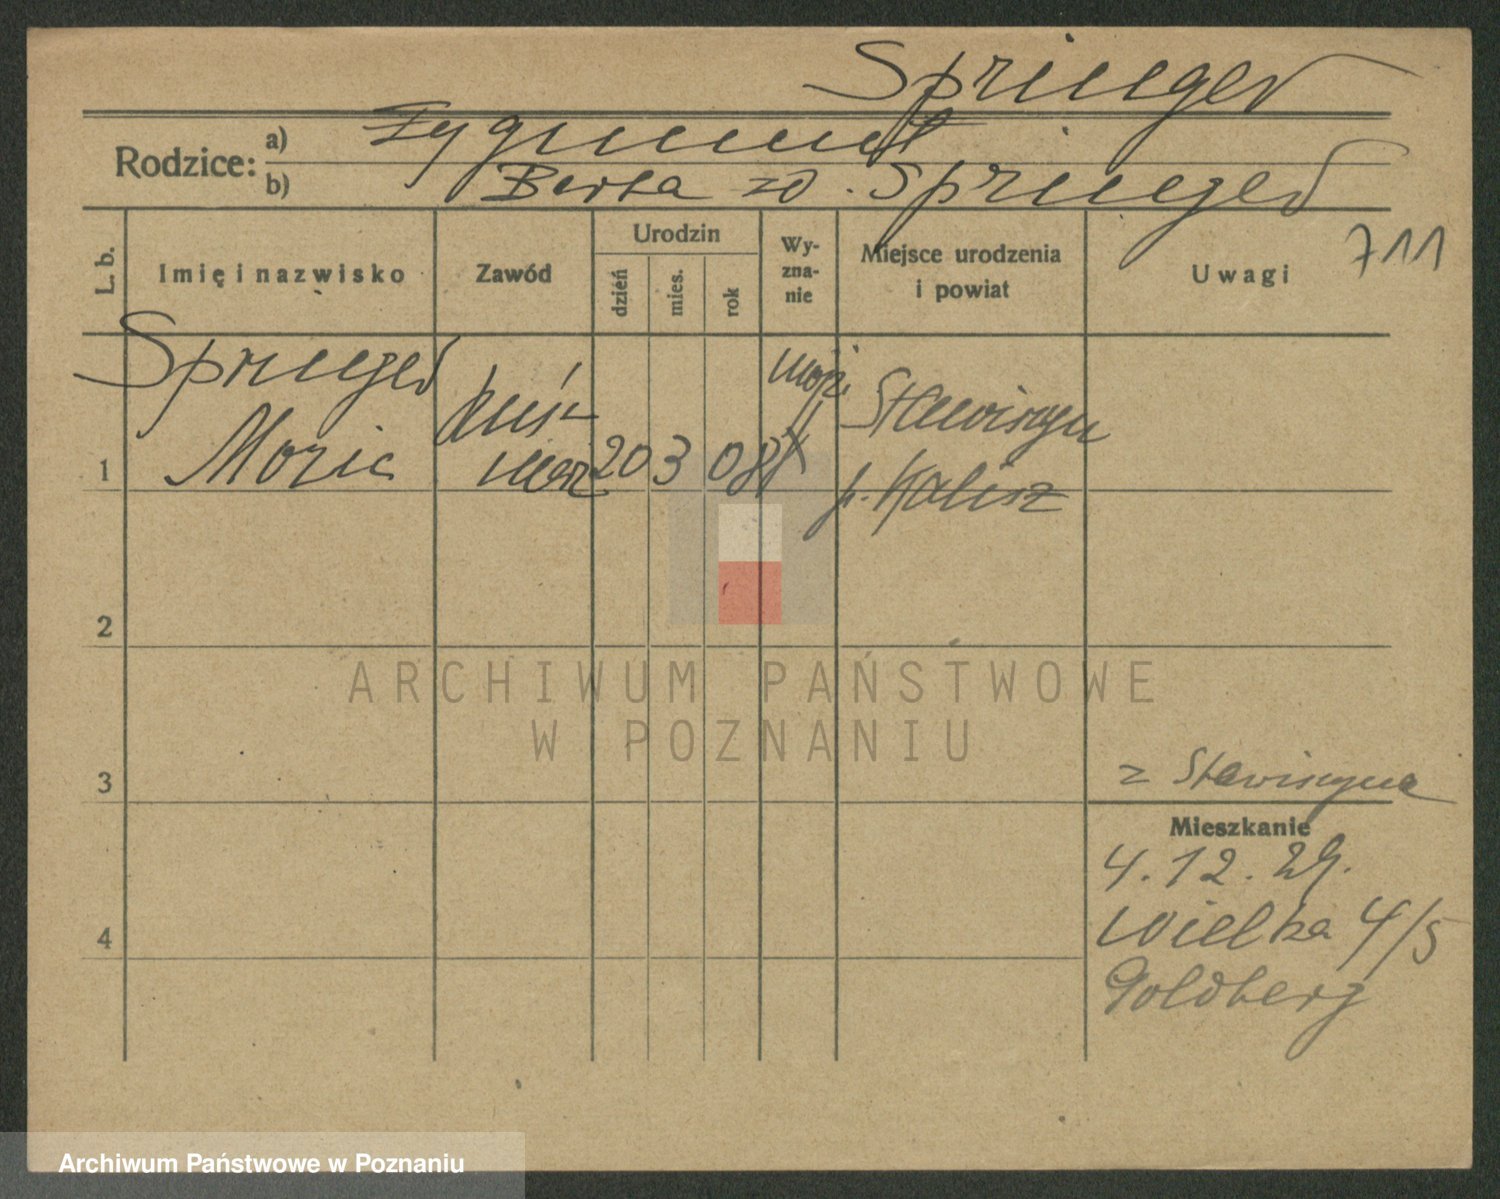 Springer
Rodzice: a) Zygmunt
b) Berta zd. Springer
L. b.
Imię i nazwisko
Zawód
Urodzin
dzień
mies.
rok
Wy-
zna-
nie
Miejsce urodzenia
i powiat
Uwagi
711
1
Springer
Moric
kuś-
nierz
20 3 08
mojż.
Stawiszyn
p. Kalisz
2
3
z Stawiszyna
Mieszkanie
4.12.29.
Wielka 4/5
Goldberg
4
ARCHIWUM PAŃSTWOWE
W POZNANIU
Archiwum Państwowe w Poznaniu